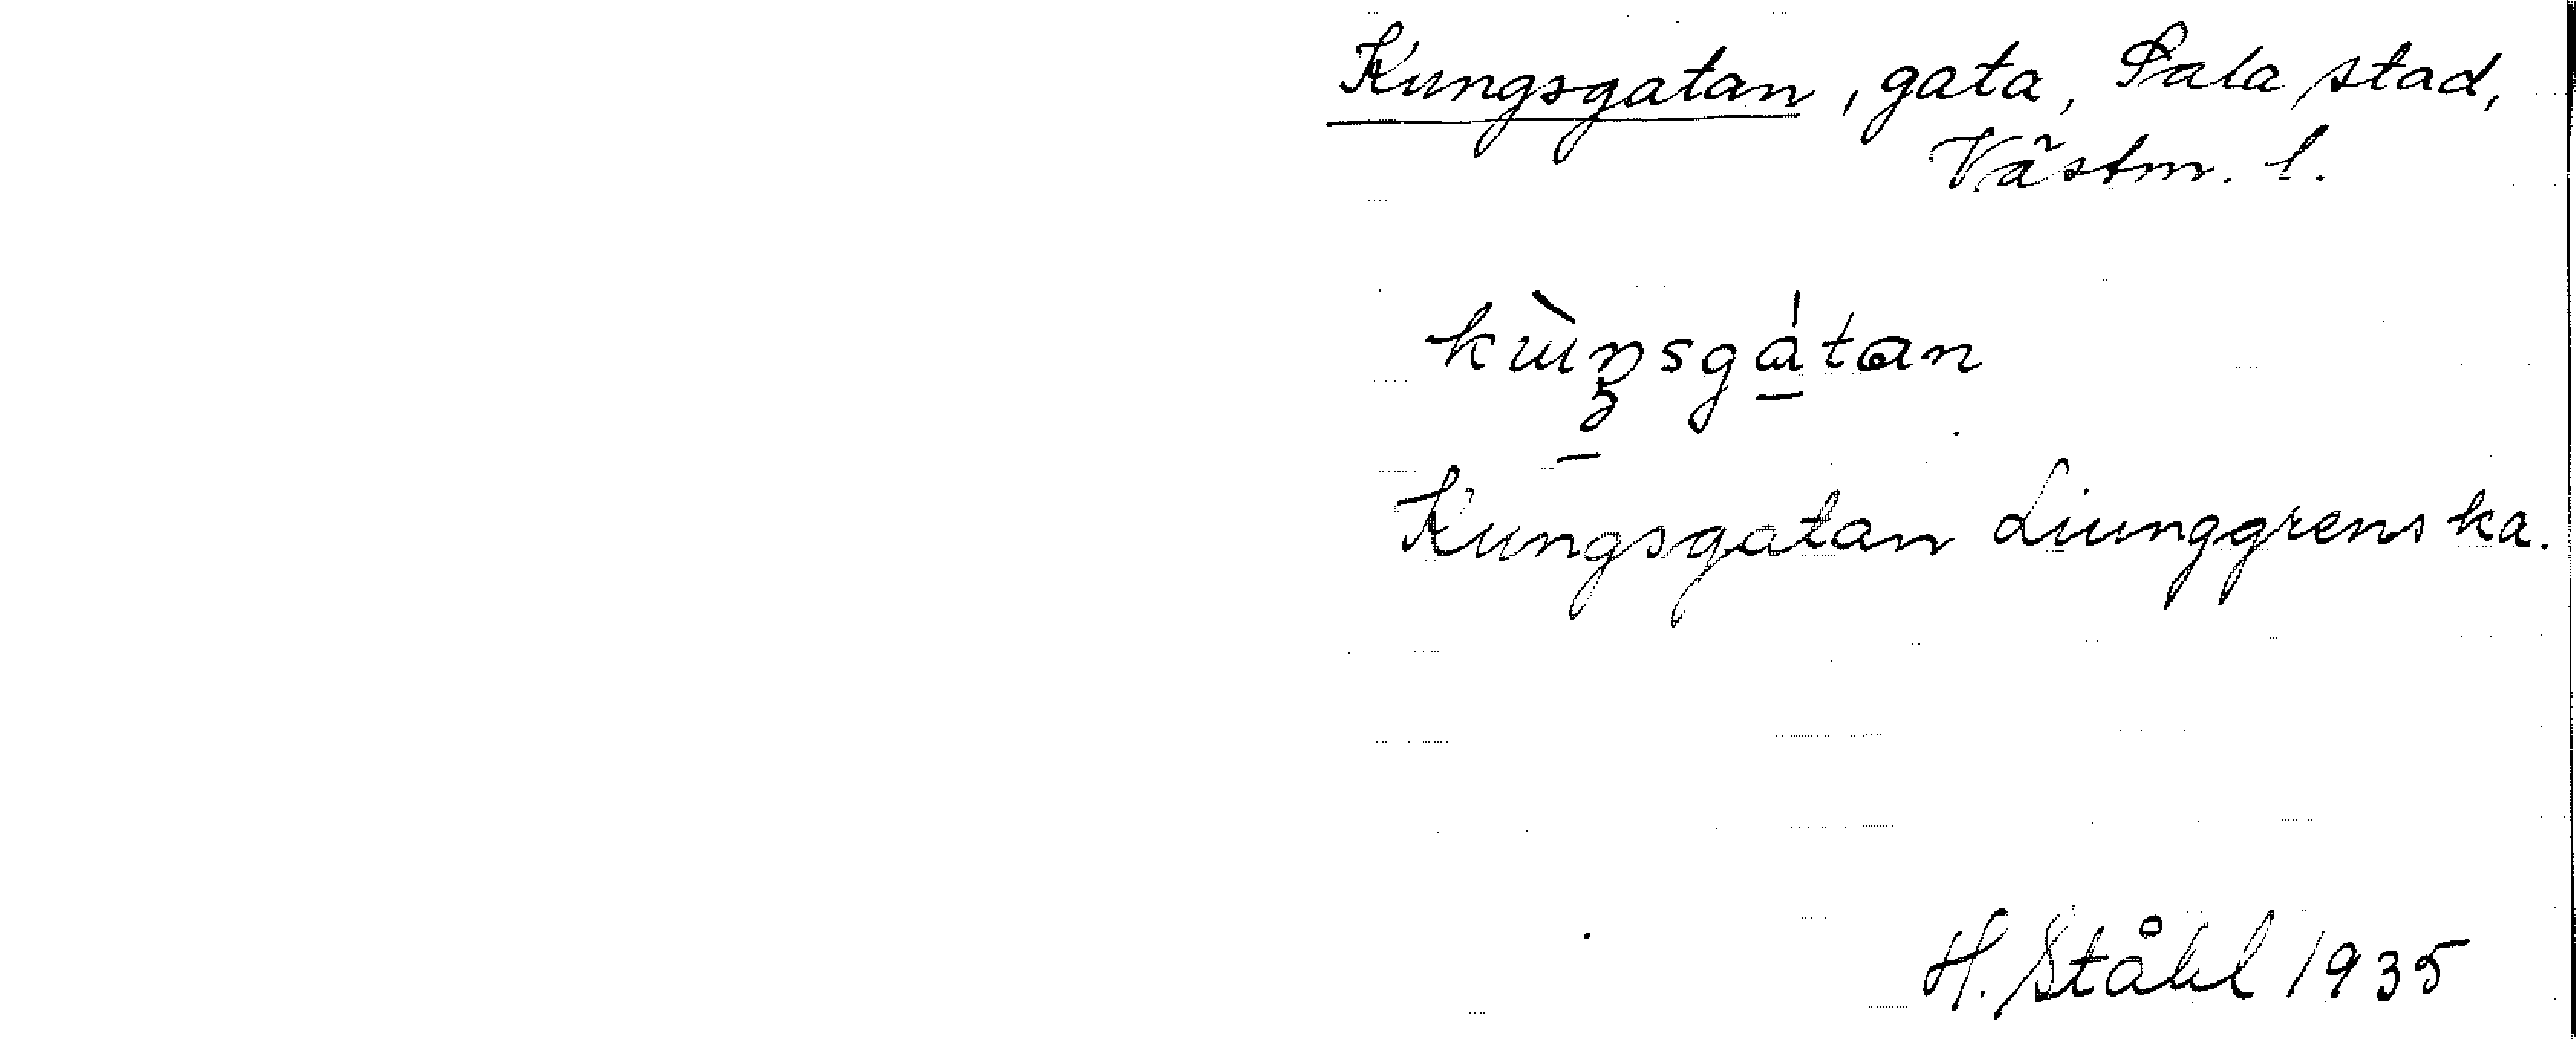 Kungsgatan, gata, Sala stad,
Västm. l.
kɯ̀ŋsgátan
Kungsgatan Liunggrenska.
H. Ståhl 1935